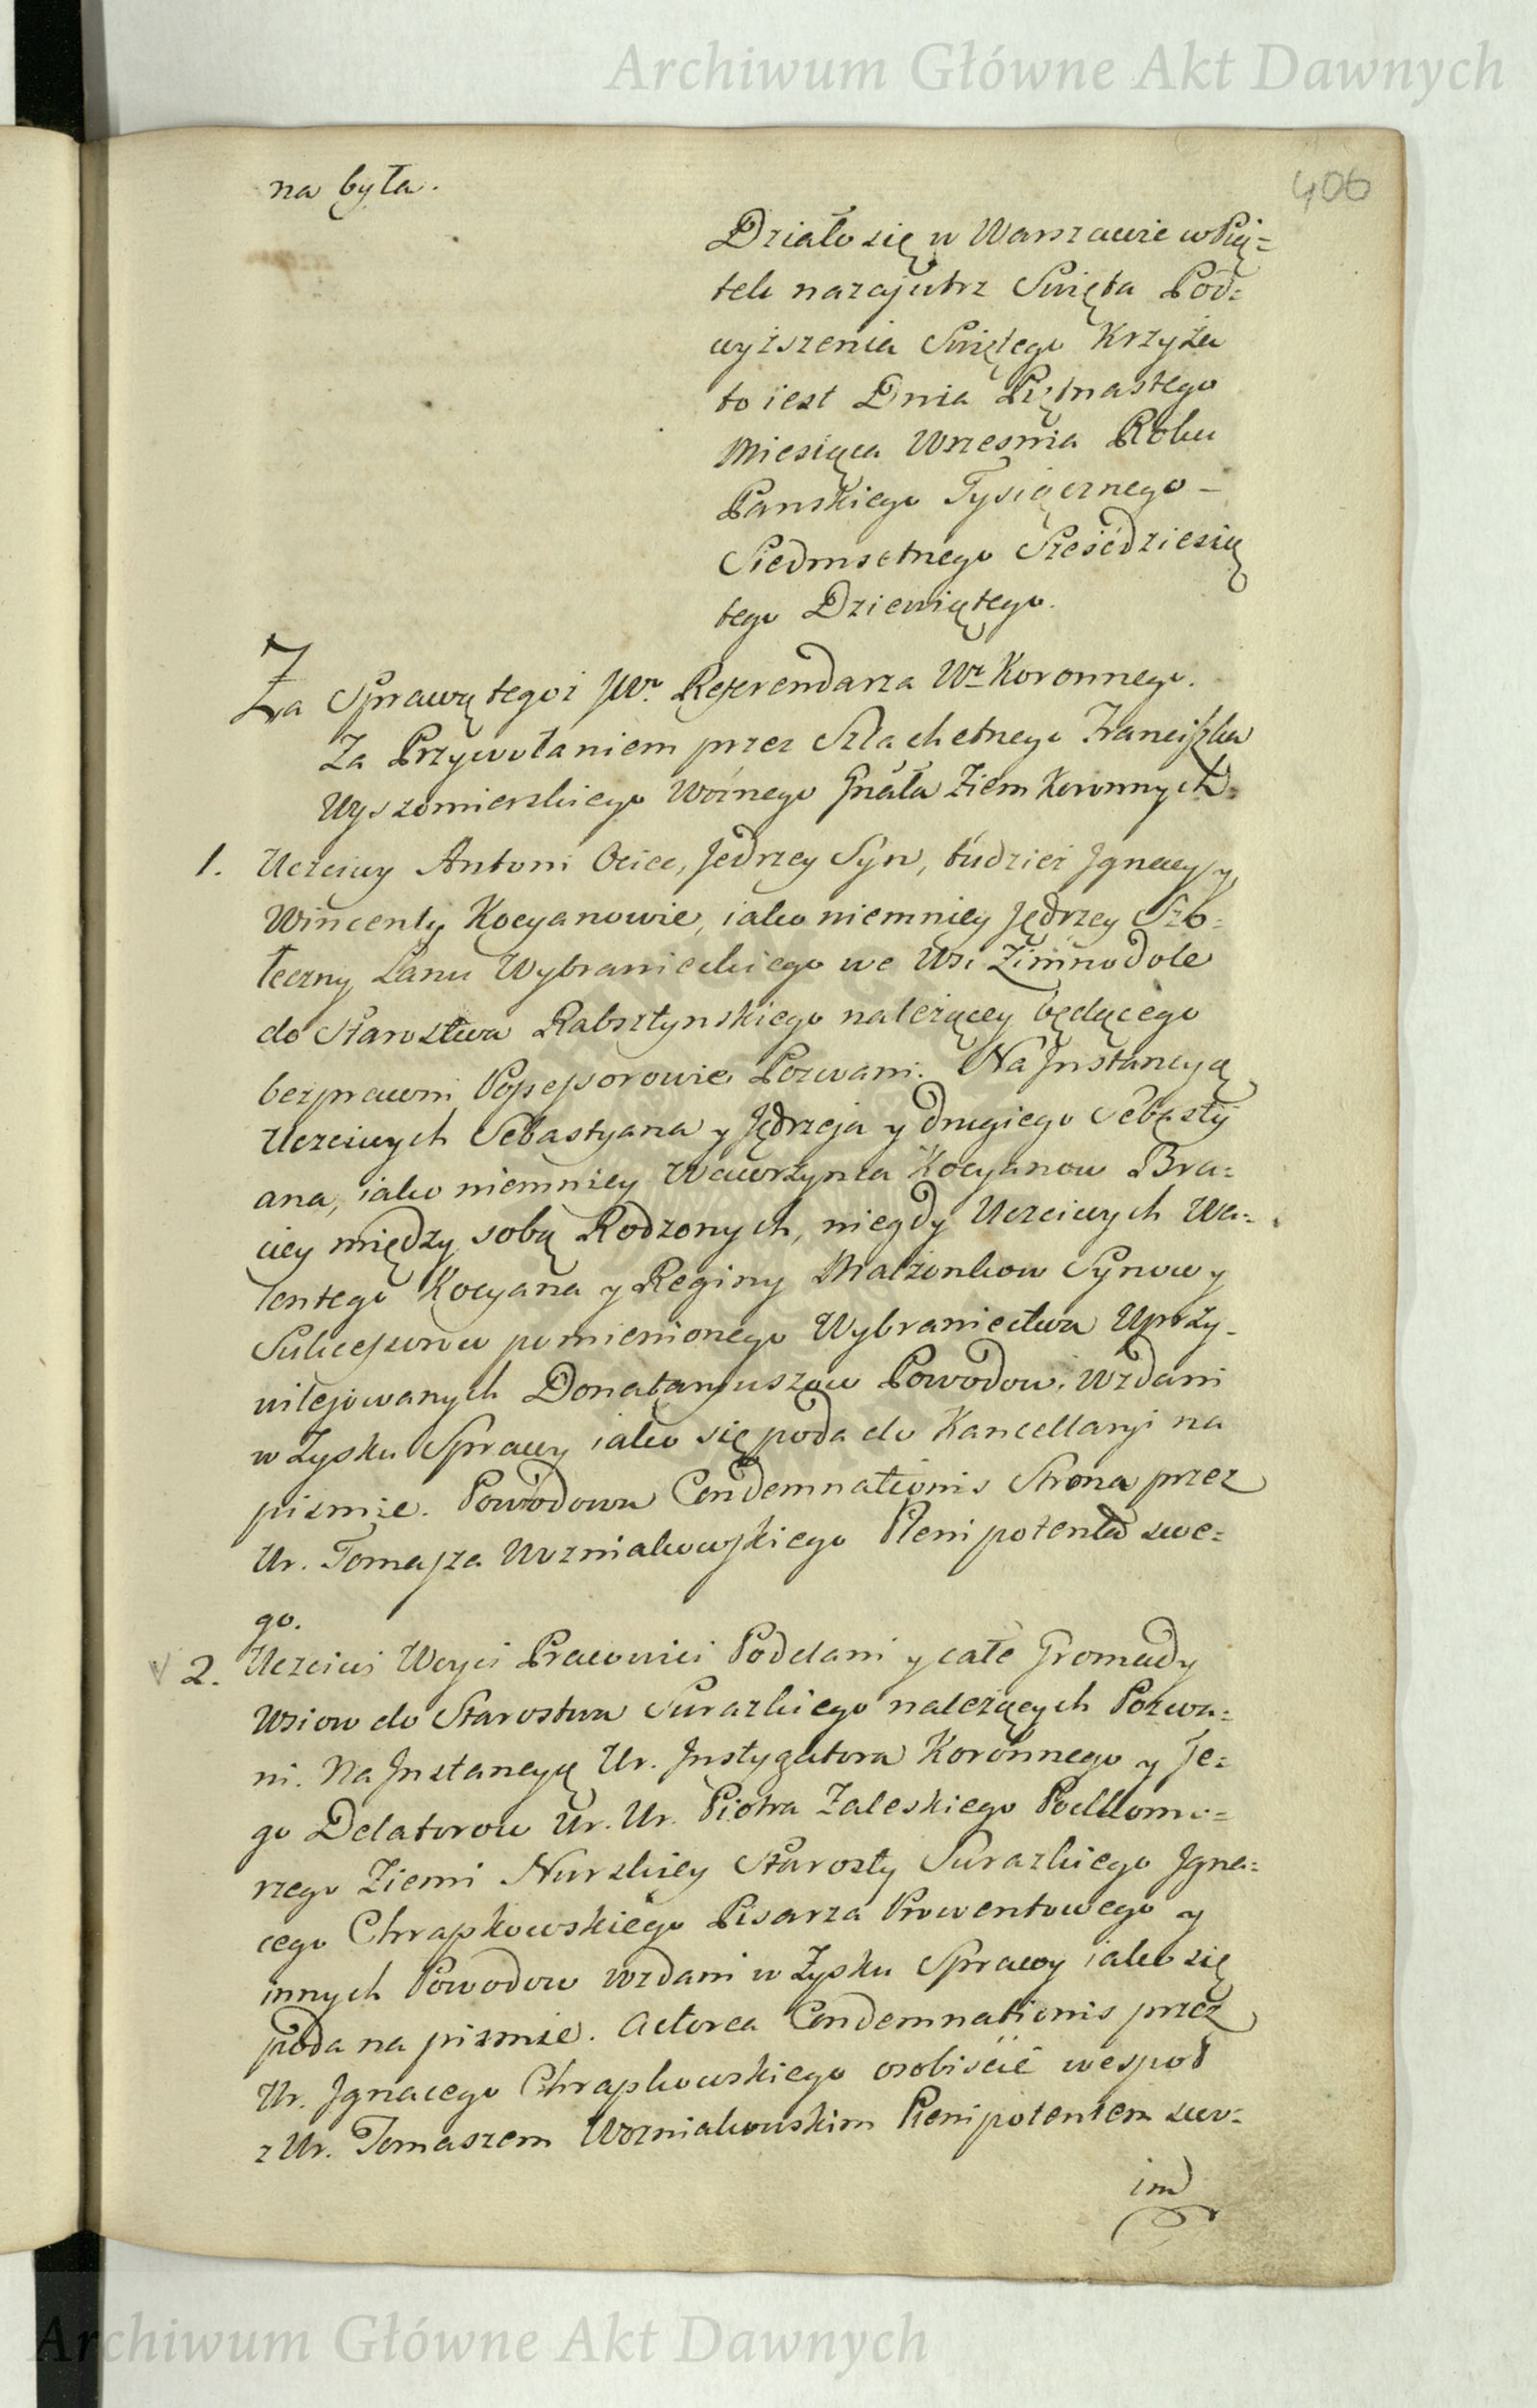 Archiwum Główne Akt Dawnych
406
na była.
Działo się w Warszawie w Pią=
tek nazajutrz Swięta Pod=
wyższenia Swiętego Krzyża
to iest Dnia Piętnastego
Miesiąca Wrzesnia Roku
Panskiego Tysiącznego –
Siedmsetnego Sześćdziesią
tego Dziewiątego.
Za Sprawą tegoż JW. Referendarza Wo Koronnego.
Za Przywołaniem przez Szlachetnego Franciszka
Wyszomierskiego Woźnego Gnała Ziem Koronnych.
1. Uczciwy Antoni Ociec, Jędrzey Syn, tudzież Jgnacy y
Wincenty Kocyanowie, iako niemniey Jędrzey Szo=
łeczny Łanu Wybranieckiego we Wsi Zimnodole
do Starostwa Rabsztynskiego należącey będącego
bezprawni Possessorowie Pozwani. Na Jnstancyą
Uczciwych Sebastyana y Jędrzeja y drugiego Sebasty
ana, iako niemniey Wawrzynca Kocyanow Bra=
ciey między sobą Rodzonych, niegdy Uczciwych Wa=
lentego Kocyana y Reginy Małżonkow Synow y
Sukcessorow pomienionego Wybraniectwa Uprzy=
wilejowanych Donataryuszow Powodow. Wzdani
w Zysku Sprawy iako się poda do Kancellaryi na
pismie. Powodowa Condemnationis Strona przez
Ur. Tomasza Wozniakowskiego Plenipotenta swe=
go.
2. Uczciwi Woyci Pracowici Poddani y całe Gromady
Wsiow do Starostwa Surazkiego należących Pozwa=
ni. Na Jnstancyą Ur. Jnstygatora Koronnego y Je=
go Delatorow Ur. Ur. Piotra Zaleskiego Podkomo=
rzego Ziemi Nurskiey Starosty Surazkiego Jgna=
cego Chrapkowskiego Pisarza Prowentowego y
innych Powodow wzdani w Zysku Sprawy iako się
poda na pismie. Actorea Condemnationis przez
Ur. Jgnacego Chrapkowskiego osobiscie wespoł
z Ur. Tomaszem Wozniakowskim Plenipotentem swo=
im
Archiwum Główne Akt Dawnych